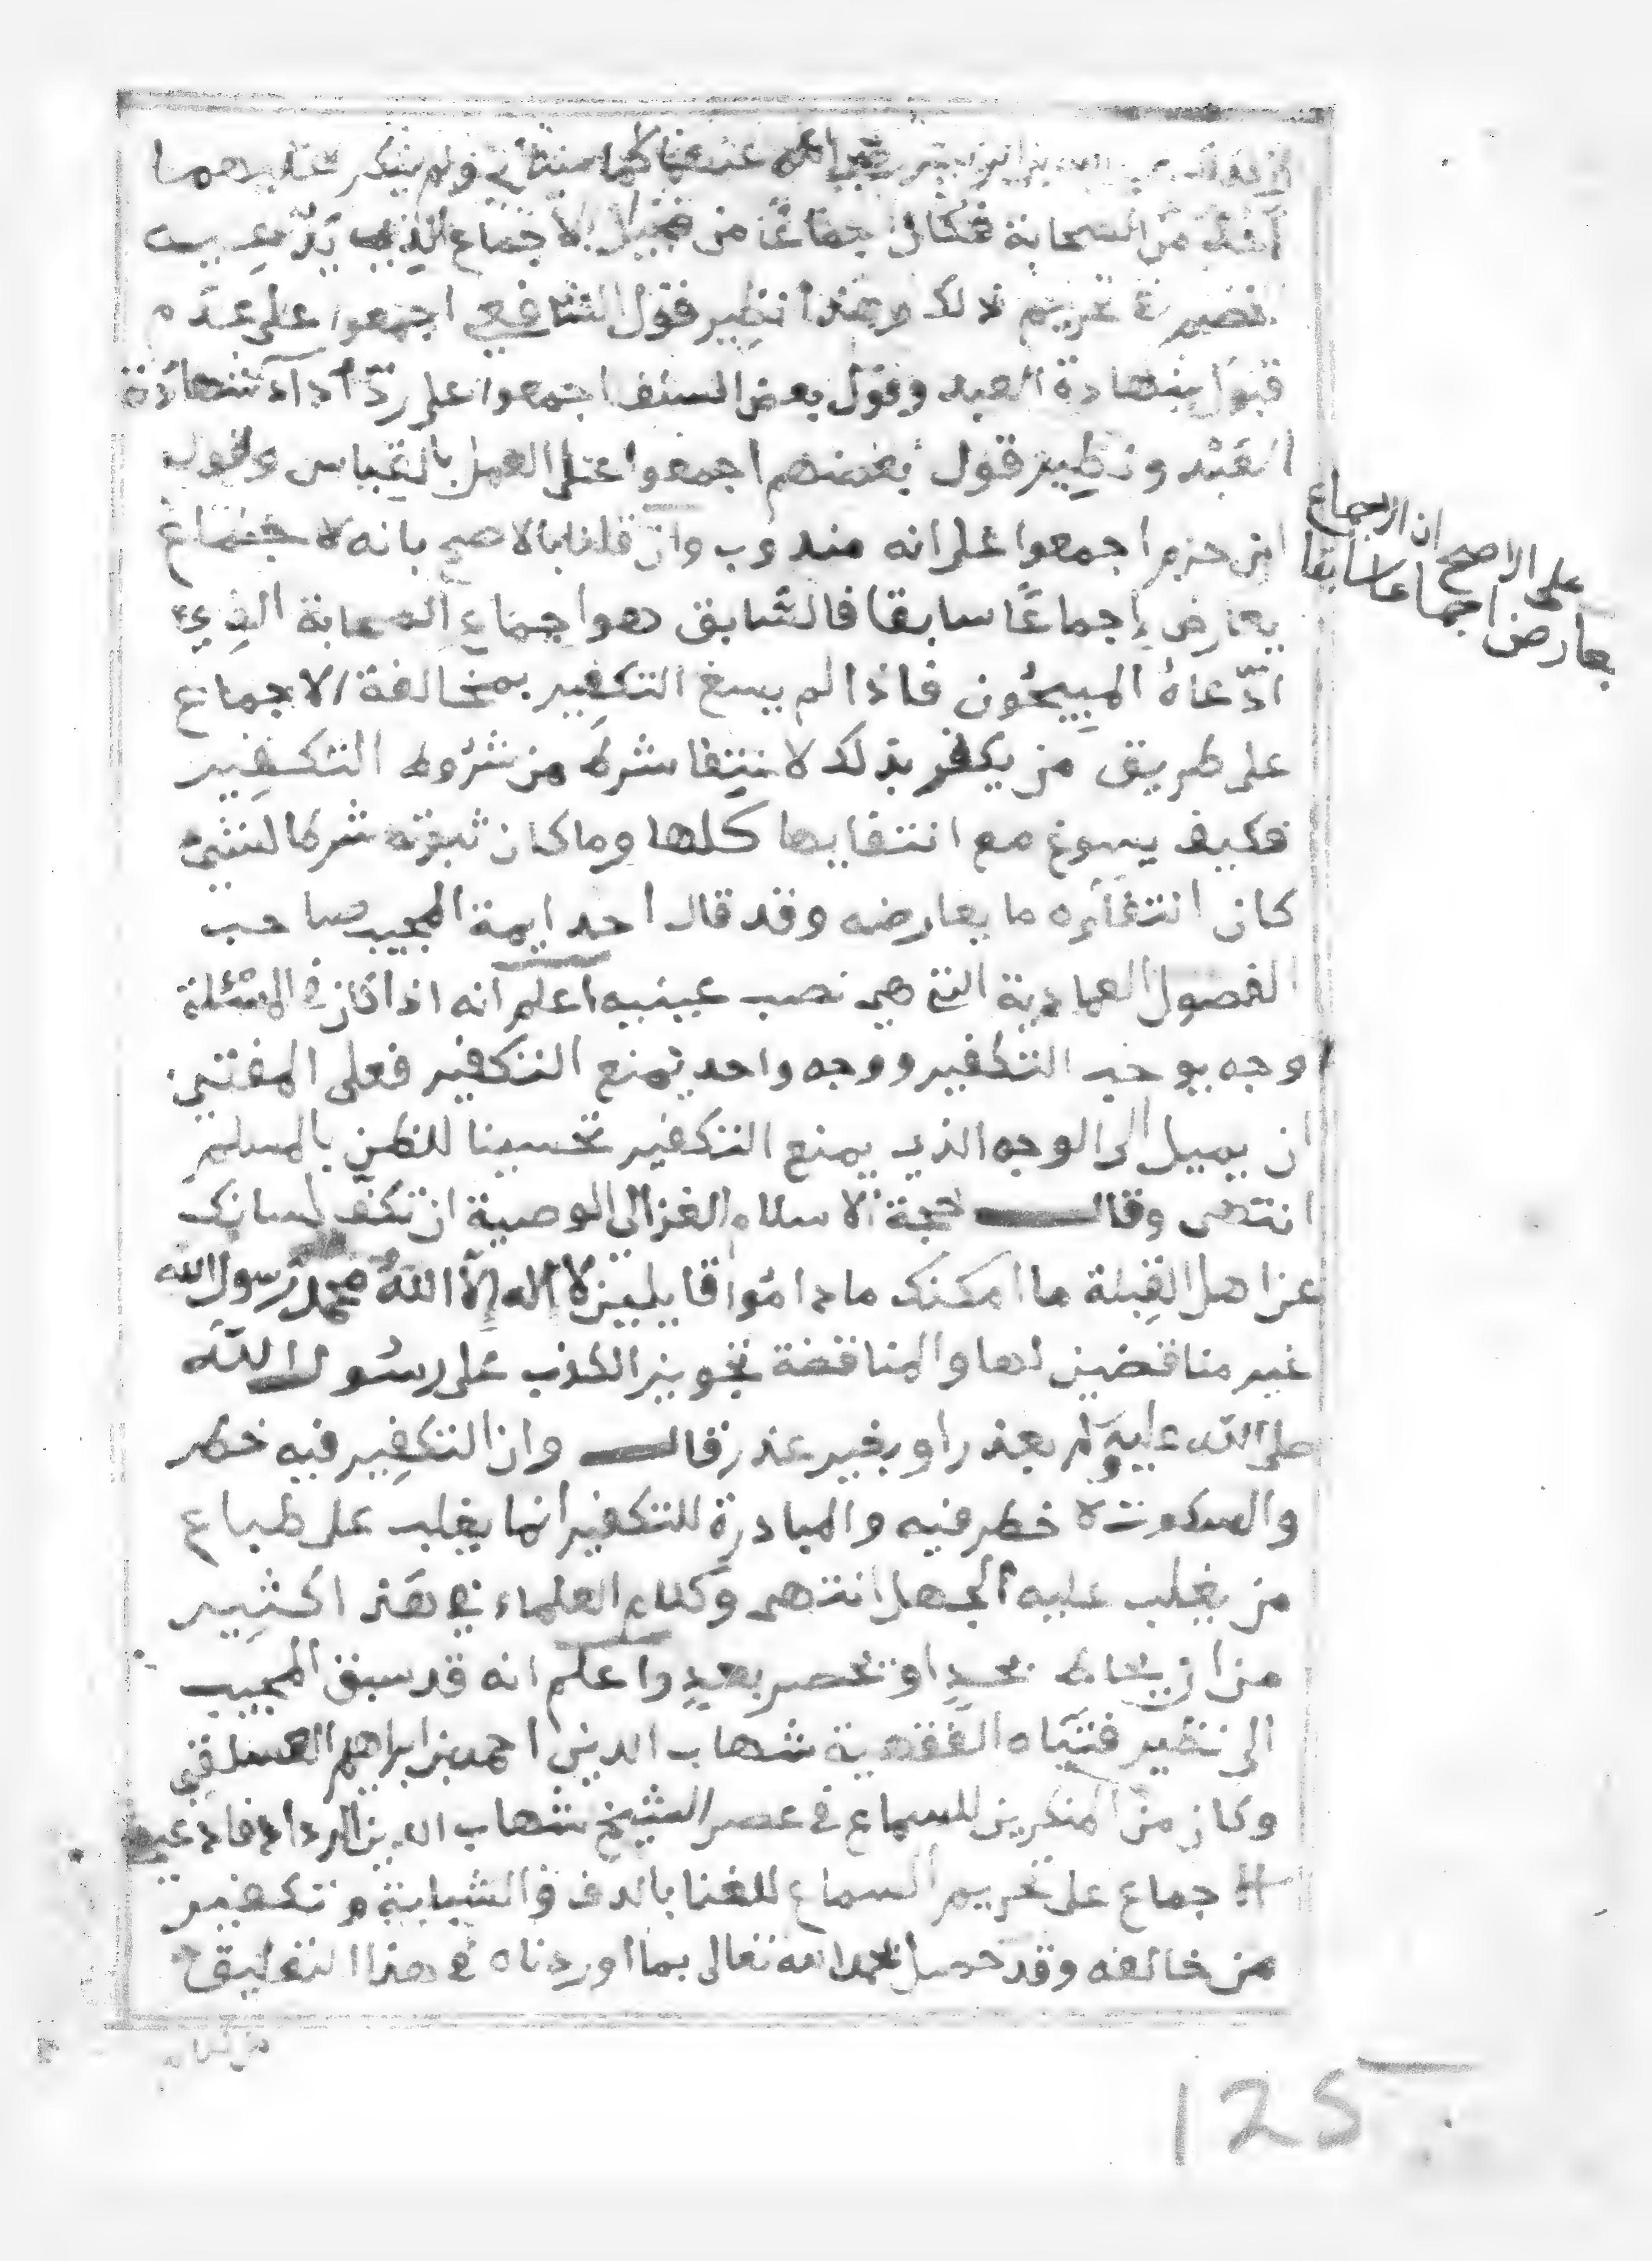 رضي الله عنهما كما سيأتي ولم ينكر عليهما
أحد من الصحابة فكان اجماعًا من قبيل الاجماع الذي يدّعيه
الخصم في تحريم ذلك وهذا نظير قول الشافعي اجمعوا على عدم
قبول شهادة العبد وقول بعض السلف اجمعوا على ردّ أداء شهادة
العَبْد ونظير قول بعضهم اجمعوا على العمل بالقياس وقول
ابن حزم اجمعوا على انه مندوب وان قلنا بالاصح بانه لا جماع
يعارض إجماعًا سابقا فالسّابق هو اجماع الصحابة الذي
ادّعاهُ المبيحُون فاذا لم يسغ التكفير بمخالفة الاجماع
على طريق من يكفر بذلك لانتفا شرط من شرُوط التكفير
فكيف يسوغ مع انتفايها كلها وما كان ثبوته شرطا لشئ
كان انتفاؤه ما يعارضه وقد قال احد ايمة المجيب صاحب
الفصول العمادية التي هي نصب عينيه اعلم انه اذا كان في المسئلة
وجه يوجب التكفير ووجه واحد يمنع التكفير فعلى المفتي
ان يميل الى الوجه الذي يمنع التكفير تحسينا للظن بالمسلم
انتهى وقال حجة الاسلام الغزالي الوصية ان تكف لسانك
عن اهل القبلة ما امكنك ما دامُوا قايلين لا إله إلّا اللهُ محمدٌ رسول الله
غير مناقضين لها والمناقضة تجويز الكذب على رسُول الله
صلى الله عليه وسلم بعذر او بغير عذر قال وان التكفير فيه خطر
والسكوت لا خطر فيه والمبادرة للتكفير انما يغلب على طباع
من يغلب عليه الجهل انتهى وكلام العلماء في هذا اكثير
من ان يحاط بحدٍ او تحصر بعدٍ واعلم انه قد سبق المجيب
الى نظير فتيَاه الفقهية شهاب الدين احمد بن ابراهيم العسلقي
وكان من المنكرين للسماع في عصر الشيخ شهاب الدين الرداد فادعى
الاجماع على تحريم السماع للغنا بالدف والشبابة وتكفير
من خالفه وقد حصل بحمد الله تعالى بما اوردناه في هذا التعليق
على الاصح ان الاجماع
يعارض اجماعا سابقا
125